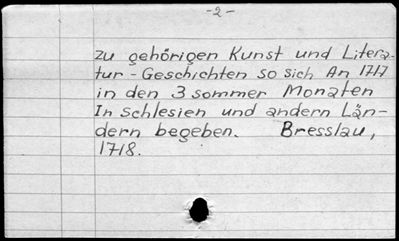 -2-
zu gehörigen Kunst und Litera-
tur-Geschichten so sich An 1717
in den 3 sommer Monaten
In Schlesien und andern Län-
dern begeben. Bresslau,
1718.